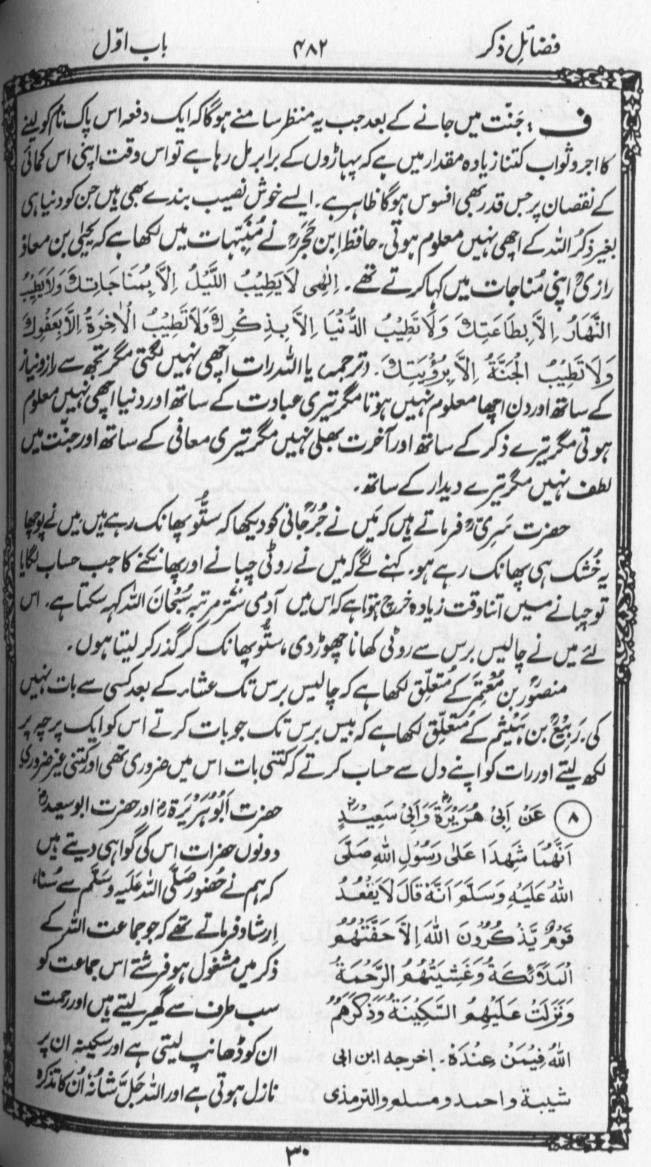 فضائل ذکر
۴۸۲
باب اوّل
ف : جنّت میں جانے کے بعد جب یہ منظر سامنے ہوگا کہ ایک دفعہ اس پاک نام کو لینے
کا اجر و ثواب کتنا زیادہ مقدار میں ہے کہ پہاڑوں کے برابر مل رہا ہے تو اس وقت اپنی اس کمائی
کے نقصان پر جس قدر بھی افسوس ہوگا ظاہر ہے۔ ایسے خوش نصیب بندے بھی ہیں جن کو دنیا ہی
بغیر ذکرُ اللہ کے اچھی نہیں معلوم ہوتی۔ حافظ ابن حَجَرؒ نے مُنَبِّہات میں لکھا ہے کہ یحییٰ بن معاذ
رازیؒ اپنی مُناجات میں کہا کرتے تھے۔ اِلٰھِی لَا یَطِیْبُ اللَّیْلُ اِلَّا بِمُنَاجَاتِكَ وَلَا یَطِیْبُ
النَّھَارُ اِلَّا بِطَاعَتِكَ وَلَا تَطِیْبُ الدُّنْیَا اِلَّا بِذِکْرِكَ وَلَا تَطِیْبُ الْاٰخِرَۃُ اِلَّا بِعَفْوِكَ
وَلَا تَطِیْبُ الْجَنَّۃُ اِلَّا بِرُؤْیَتِكَ۔ (ترجمہ) یا اللہ رات اچھی نہیں لگتی مگر تجھ سے راز و نیاز
کے ساتھ اور دن اچھا معلوم نہیں ہوتا مگر تیری عبادت کے ساتھ اور دنیا اچھی نہیں معلوم
ہوتی مگر تیرے ذکر کے ساتھ اور آخرت بھلی نہیں مگر تیری معافی کے ساتھ اور جنّت میں
لطف نہیں مگر تیرے دیدار کے ساتھ۔
حضرت سَرِیؒ فرماتے ہیں کہ مَیں نے جُرجانیؒ کو دیکھا کہ ستُّو پھانک رہے ہیں میں نے پوچھا
یہ خُشک ہی پھانک رہے ہو۔ کہنے لگے کہ میں نے روٹی چبانے اور پھانکنے کا جب حساب لگایا
تو چبانے میں اتنا وقت زیادہ خرچ ہوتا ہے کہ اس میں آدمی ستّر مرتبہ سُبْحَانَ اللہ کہہ سکتا ہے۔ اس
لئے میں نے چالیس برس سے روٹی کھانا چھوڑ دی، ستُّو پھانک کر گذر کر لیتا ہوں۔
منصورؒ بن مُعْتَمِر کے مُتعلّق لکھا ہے کہ چالیس برس تک عشاء کے بعد کسی سے بات نہیں
کی۔ رَبِیْعؒ بن ہَیْثَم کے مُتعلّق لکھا ہے کہ بیس برس تک جو بات کرتے اس کو ایک پرچہ پر
لکھ لیتے اور رات کو اپنے دل سے حساب کرتے کہ کتنی بات اس میں ضروری تھی اور کتنی غیر ضروری
۸ عَنْ اَبِیْ ھُرَیْرَۃَ وَاَبِیْ سَعِیْدٍ
اَنَّھُمَا شَھِدَا عَلٰی رَسُوْلِ اللہِ صَلَّی
اللہُ عَلَیْہِ وَسَلَّمَ اَنَّہٗ قَالَ لَا یَقْعُدُ
قَوْمٌ یَّذْکُرُوْنَ اللہَ اِلَّا حَفَّتْھُمُ
الْمَلَائِکَۃُ وَغَشِیَتْھُمُ الرَّحْمَۃُ
وَنَزَلَتْ عَلَیْھِمُ السَّکِیْنَۃُ وَذَکَرَھُمُ
اللہُ فِیْمَنْ عِنْدَہٗ۔ اخرجہ ابن ابی
شیبۃ واحمد ومسلم والترمذی
حضرت اَبُوہُرَیْرَۃؓ اور حضرت ابو سعیدؓ
دونوں حضرات اس کی گواہی دیتے ہیں
کہ ہم نے حُضور صَلَّی اللہُ عَلَیْہِ وَسَلَّم سے سُنا،
اِرشاد فرماتے تھے کہ جو جماعت اللہ کے
ذکر میں مشغول ہو فرشتے اس جماعت کو
سب طرف سے گھیر لیتے ہیں اور رحمت
ان کو ڈھانپ لیتی ہے اور سکینہ ان پر
نازل ہوتی ہے اور اللہ جَلَّ شَانُہٗ اُن کا تذکرہ
۳۰